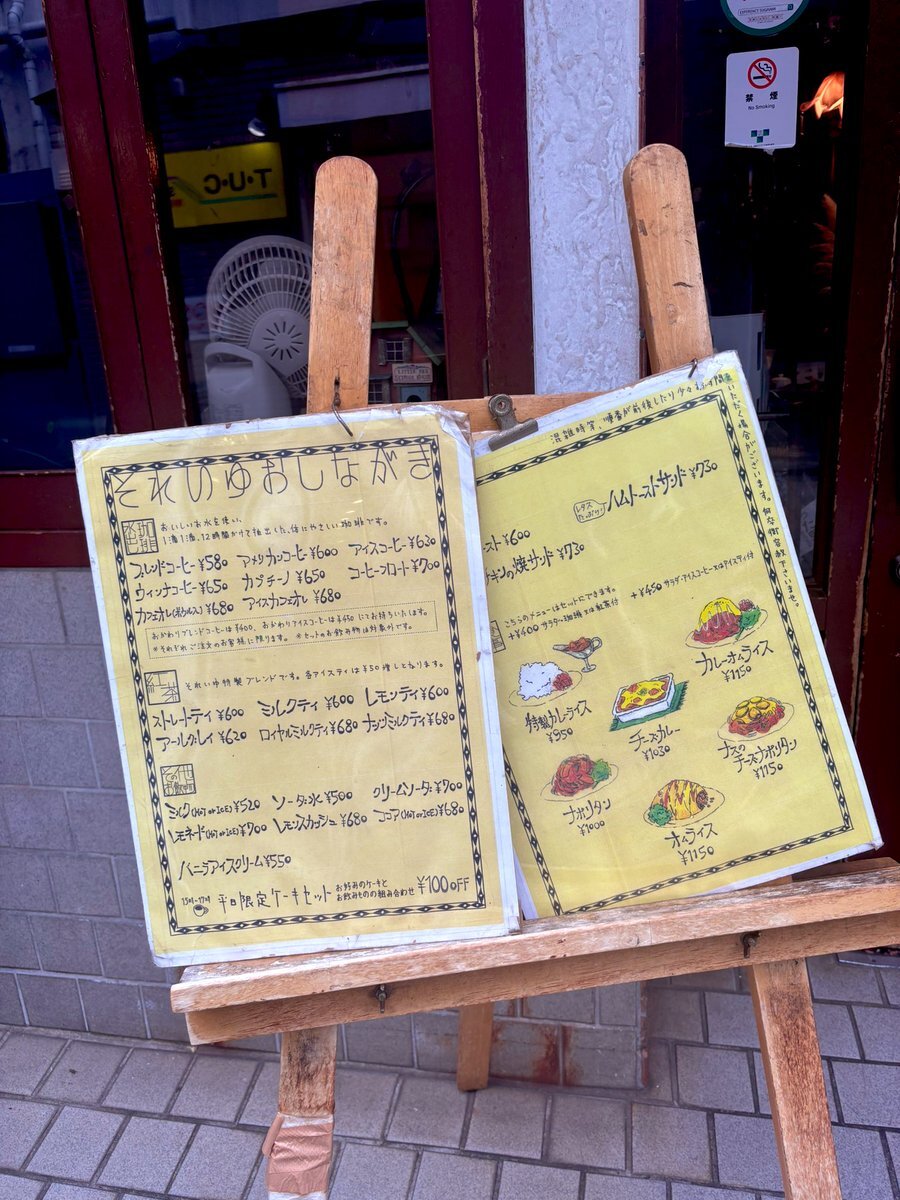 禁煙
No Smoking
T・U・C
それいゆおしながき
珈琲
おいしいお水を使い、
1滴1滴、12時間かけて抽出した、体にやさしい珈琲です。
ブレンドコーヒー¥580 アメリカンコーヒー¥600 アイスコーヒー¥630
ウィンナコーヒー¥650 カプチーノ¥650 コーヒーフロート¥700
カフェオレ(ボウル入り)¥680 アイスカフェオレ¥680
おかわりブレンドコーヒーは¥400、おかわりアイスコーヒーは¥450にてお持ちいたします。
※それぞれご注文のお客様に限ります。※セットのお飲み物は対象外です。
紅茶
それいゆ特製ブレンドです。各アイスティは¥50増しとなります。
ストレートティ¥600 ミルクティ¥600 レモンティ¥600
アールグレイ¥620 ロイヤルミルクティ¥680 ナッツミルクティ¥680
ミルク(HOT or ICE)¥520 ソーダ水¥500 クリームソーダ¥700
レモネード(HOT or ICE)¥700 レモンスカッシュ¥680 ココア(HOT or ICE)¥680
バニラアイスクリーム¥550
平日限定ケーキセット お好みのケーキと
お飲みものの組み合わせ ¥100OFF
混雑時等、順番が前後したり少々お時間を
いただく場合がございます。何卒御容赦下さいませ。
レタスたっぷり ハムトーストサンド¥730
ースト¥600
チキンの焼サンド¥730
こちらのメニューはセットにできます。
+¥400 サラダ・珈琲又は紅茶付
+¥450 サラダ・アイスコーヒー又はアイスティ付
カレーオムライス
¥1150
特製カレーライス
¥950
チーズカレー
¥1030
ナスの
チーズナポリタン
¥1150
ナポリタン
¥1000
オムライス
¥1150